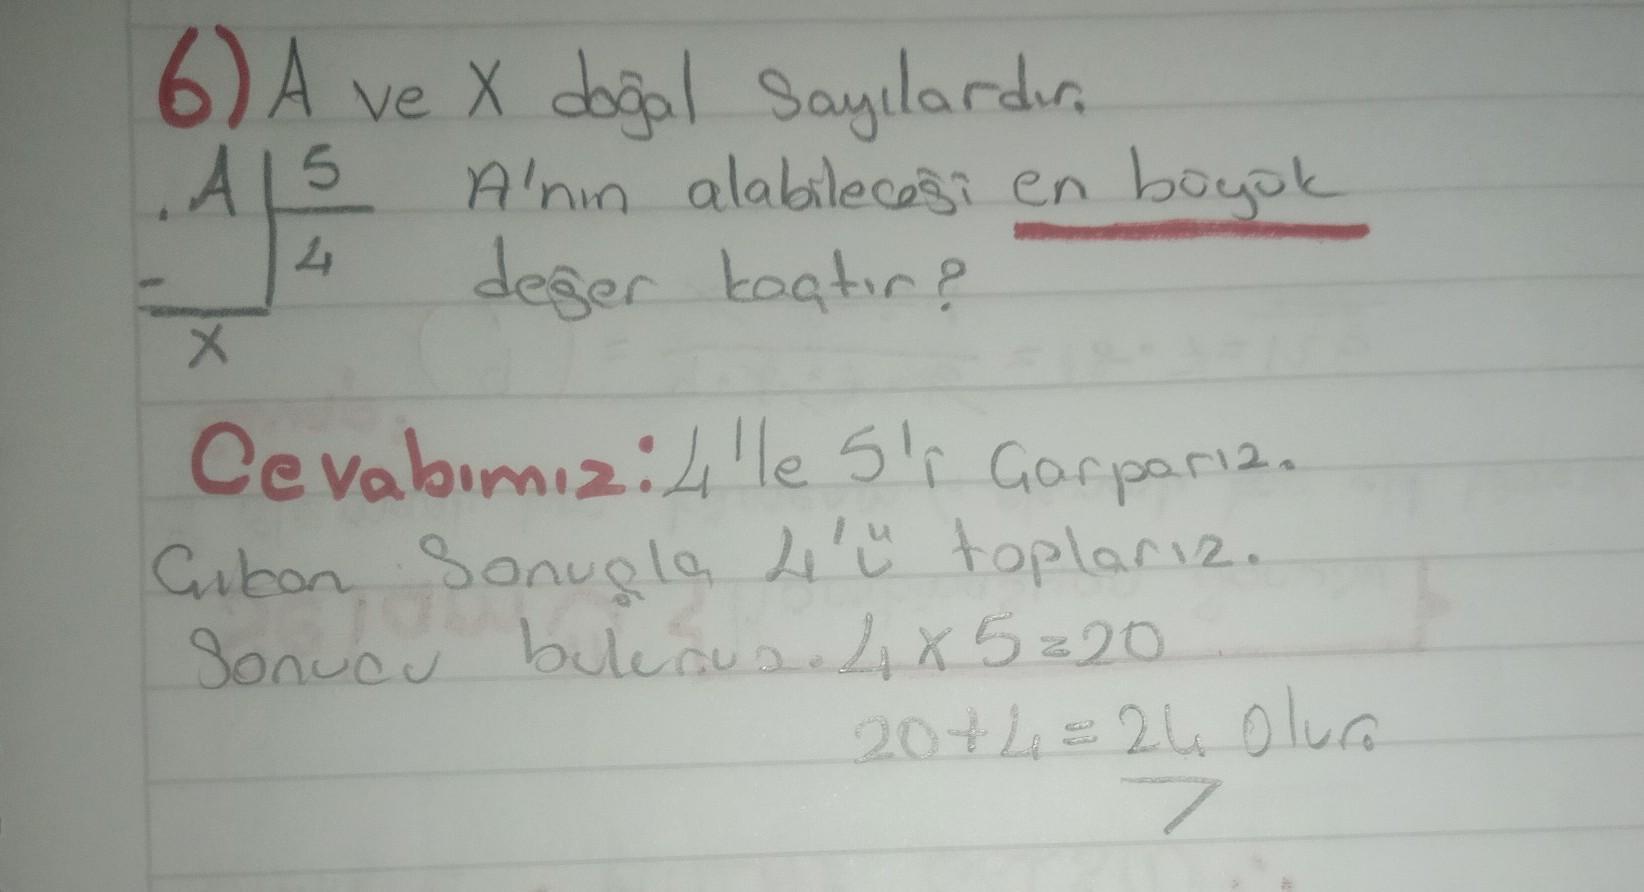 6) A ve X doğal Sayılardır.
A | 5 A'nın alabileceği en böyök
- | 4 değer kaçtır?
X
Cevabımız: 4'le 5'i Çarparız.
Çıkan Sonuçla 4'ü toplarız.
Sonucu buluruz. 4 x 5 = 20
20 + 4 = 24 Olur.